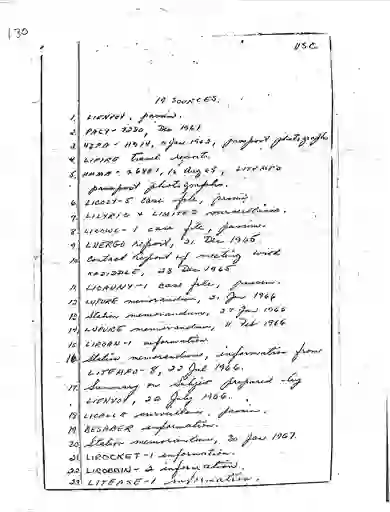 130
USC
19 SOURCES.
1. LIENVOY, passim.
2. PACY-3280, Dec 1961
3. HZPA-, Jan 1963, passport photographs
4. LIFIRE travel reports.
5. HMMA-26481, 12 Aug 65, LITEMPO
passport photographs.
6. LICOZY-5 case file, passim.
7. LILYRIC & LIMITED surveillance.
8. LICOWL-1 case file, passim.
9. LNERGO report, 21 Dec 1965
10. Contact Report of meeting with
, 23 Dec 1965
11. LICANNY-1 case file, passim.
12. LNPURE memorandum, 21 Jan 1966
13. Station memorandum, 27 Jan 1966
14. LNPURE memorandum, 11 Feb 1966
15. information
16. Station memorandum, information from
LITEMPO-8, 22 Jul 1966.
17. Summary on Subject prepared by
LIENVOY, 20 July 1966.
18. LICALLA surveillance, passim.
19. BESABER information.
20. Station memorandum, 30 Jan 1967.
21. LIROCKET-1 information.
22. LIROBBIN-2 information.
23. LITEASE-1 information.